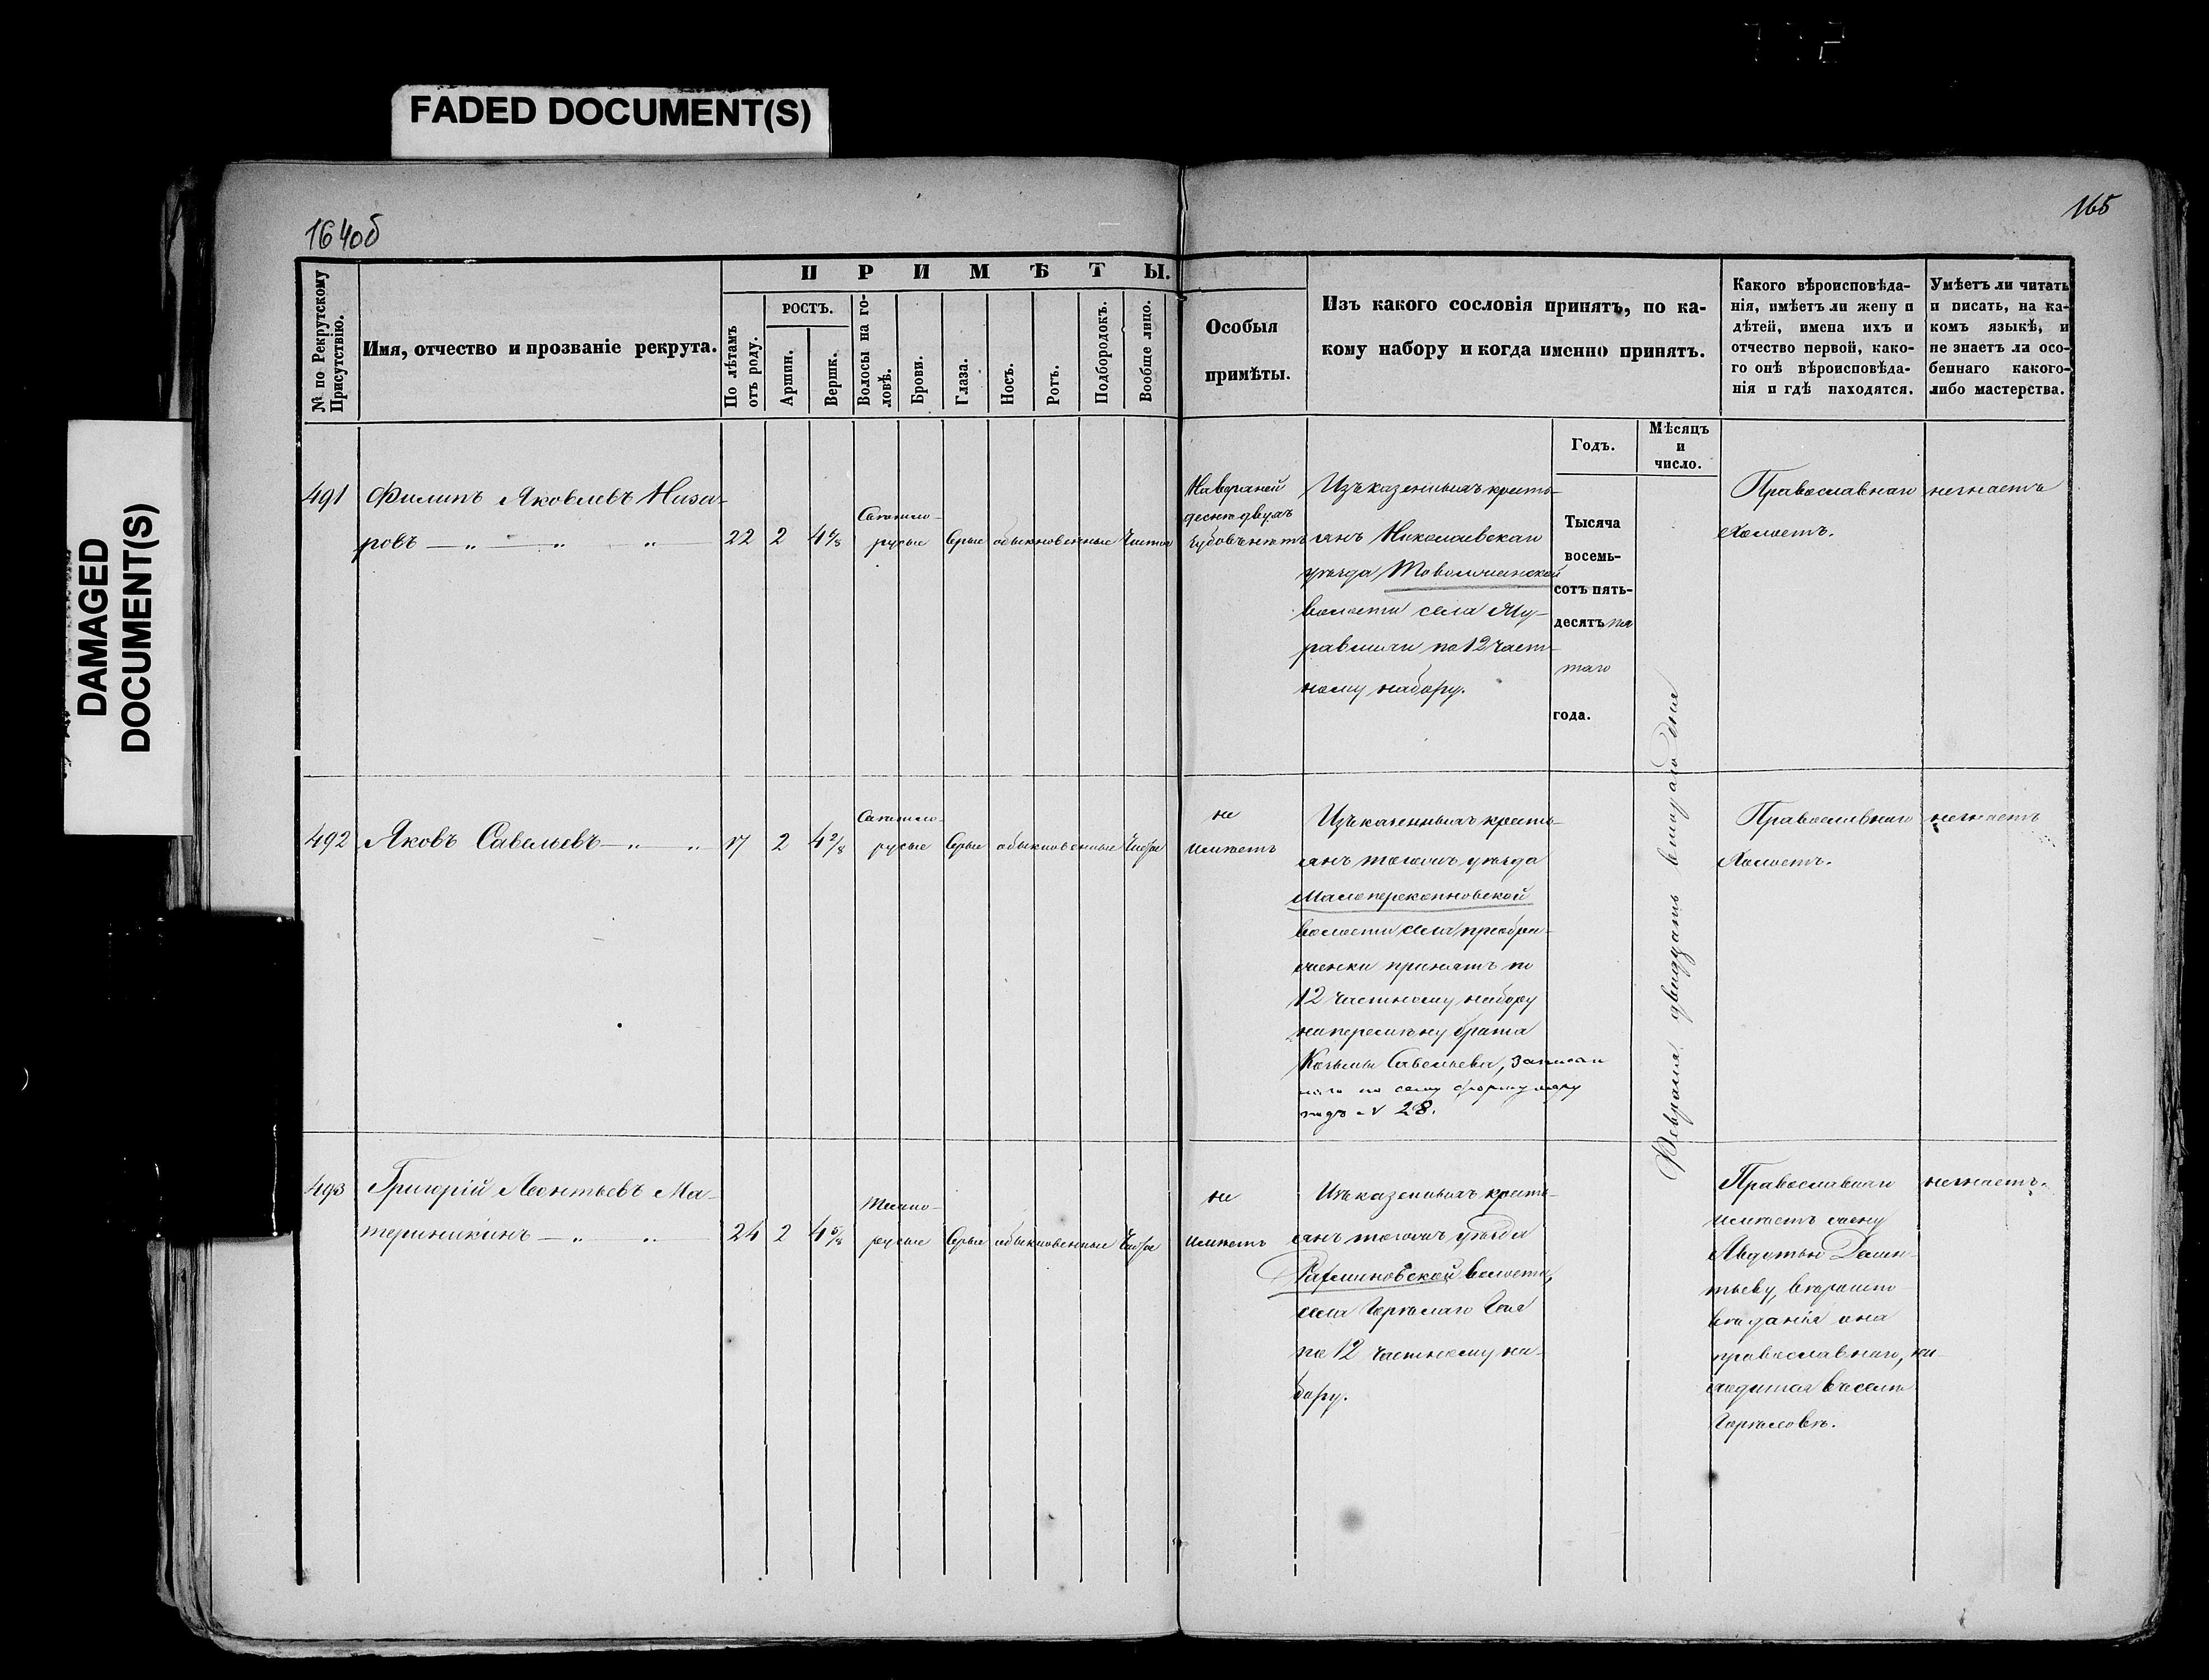 FADED DOCUMENT(S)
DAMAGED
DOCUMENT(S)
164об
165
№ по Рекрутскому
Присутствію.
Имя, отчество и прозваніе рекрута.
ПРИМѢТЫ.
По лѣтамъ
отъ роду.
РОСТЪ.
Аршин.
Вершк.
Волосы на го-
ловѣ.
Брови.
Глаза.
Носъ.
Ротъ.
Подбородокъ.
Вообще лицо.
Особыя
примѣты.
Изъ какого сословія принятъ, по ка-
кому набору и когда именно принятъ.
Годъ.
Мѣсяцъ
и
число.
Какого вѣроисповѣда-
нія, имѣетъ ли жену и
дѣтей, имена ихъ и
отчество первой, како-
го онѣ вѣроисповѣда-
нія и гдѣ находятся.
Умѣетъ ли читать
и писать, на ка-
комъ языкѣ, и
не знаетъ ли осо-
беннаго какого-
либо мастерства.
491
Филипъ Яковлевъ Наза-
ровъ — „ — „ „ —
22 2 4
Свѣтло-
русые
сѣрые обыкновенные чистое
На верхней
деснѣ двухъ
зубовъ нѣтъ
Изъ казенныхъ кресть-
янъ Николаевскаго
уѣзда
волости села Му-
равлихи по 12 част-
ному набору.
Тысяча
восемь-
сотъ пять-
десятъ пя
таго
года.
Февраля двадцать втораго дня
Православнаго
Холостъ.
незнаетъ
492
Яковъ Савельевъ — „ „
17 2 4 2/8
Свѣтло-
русые
сѣрые обыкновенные чистое
не
имѣетъ
Изъ казенныхъ кресть-
янъ тогожъ уѣзда
Малоперекопновской
волости села преобра-
женки принятъ по
12 частному набору
на перемѣну брата
Козьмы Савельева, записан
наго по сему формуляру
подъ № 28.
Православнаго
Холостъ.
незнаетъ
493
Григорій Леонтьевъ Ма-
теринкинъ — „ „ —
24 2 4 5/8
Темно-
русые
сѣрые обыкновенные чистое
не
имѣетъ
Изъ казенныхъ кресть-
янъ тогожъ уѣзда
волости,
села
по 12 частному на-
бору.
Православнаго
имѣетъ жену
Авдотью
вѣроиспо
вѣданія она
православнаго, на-
ходится въ селѣ
незнаетъ.